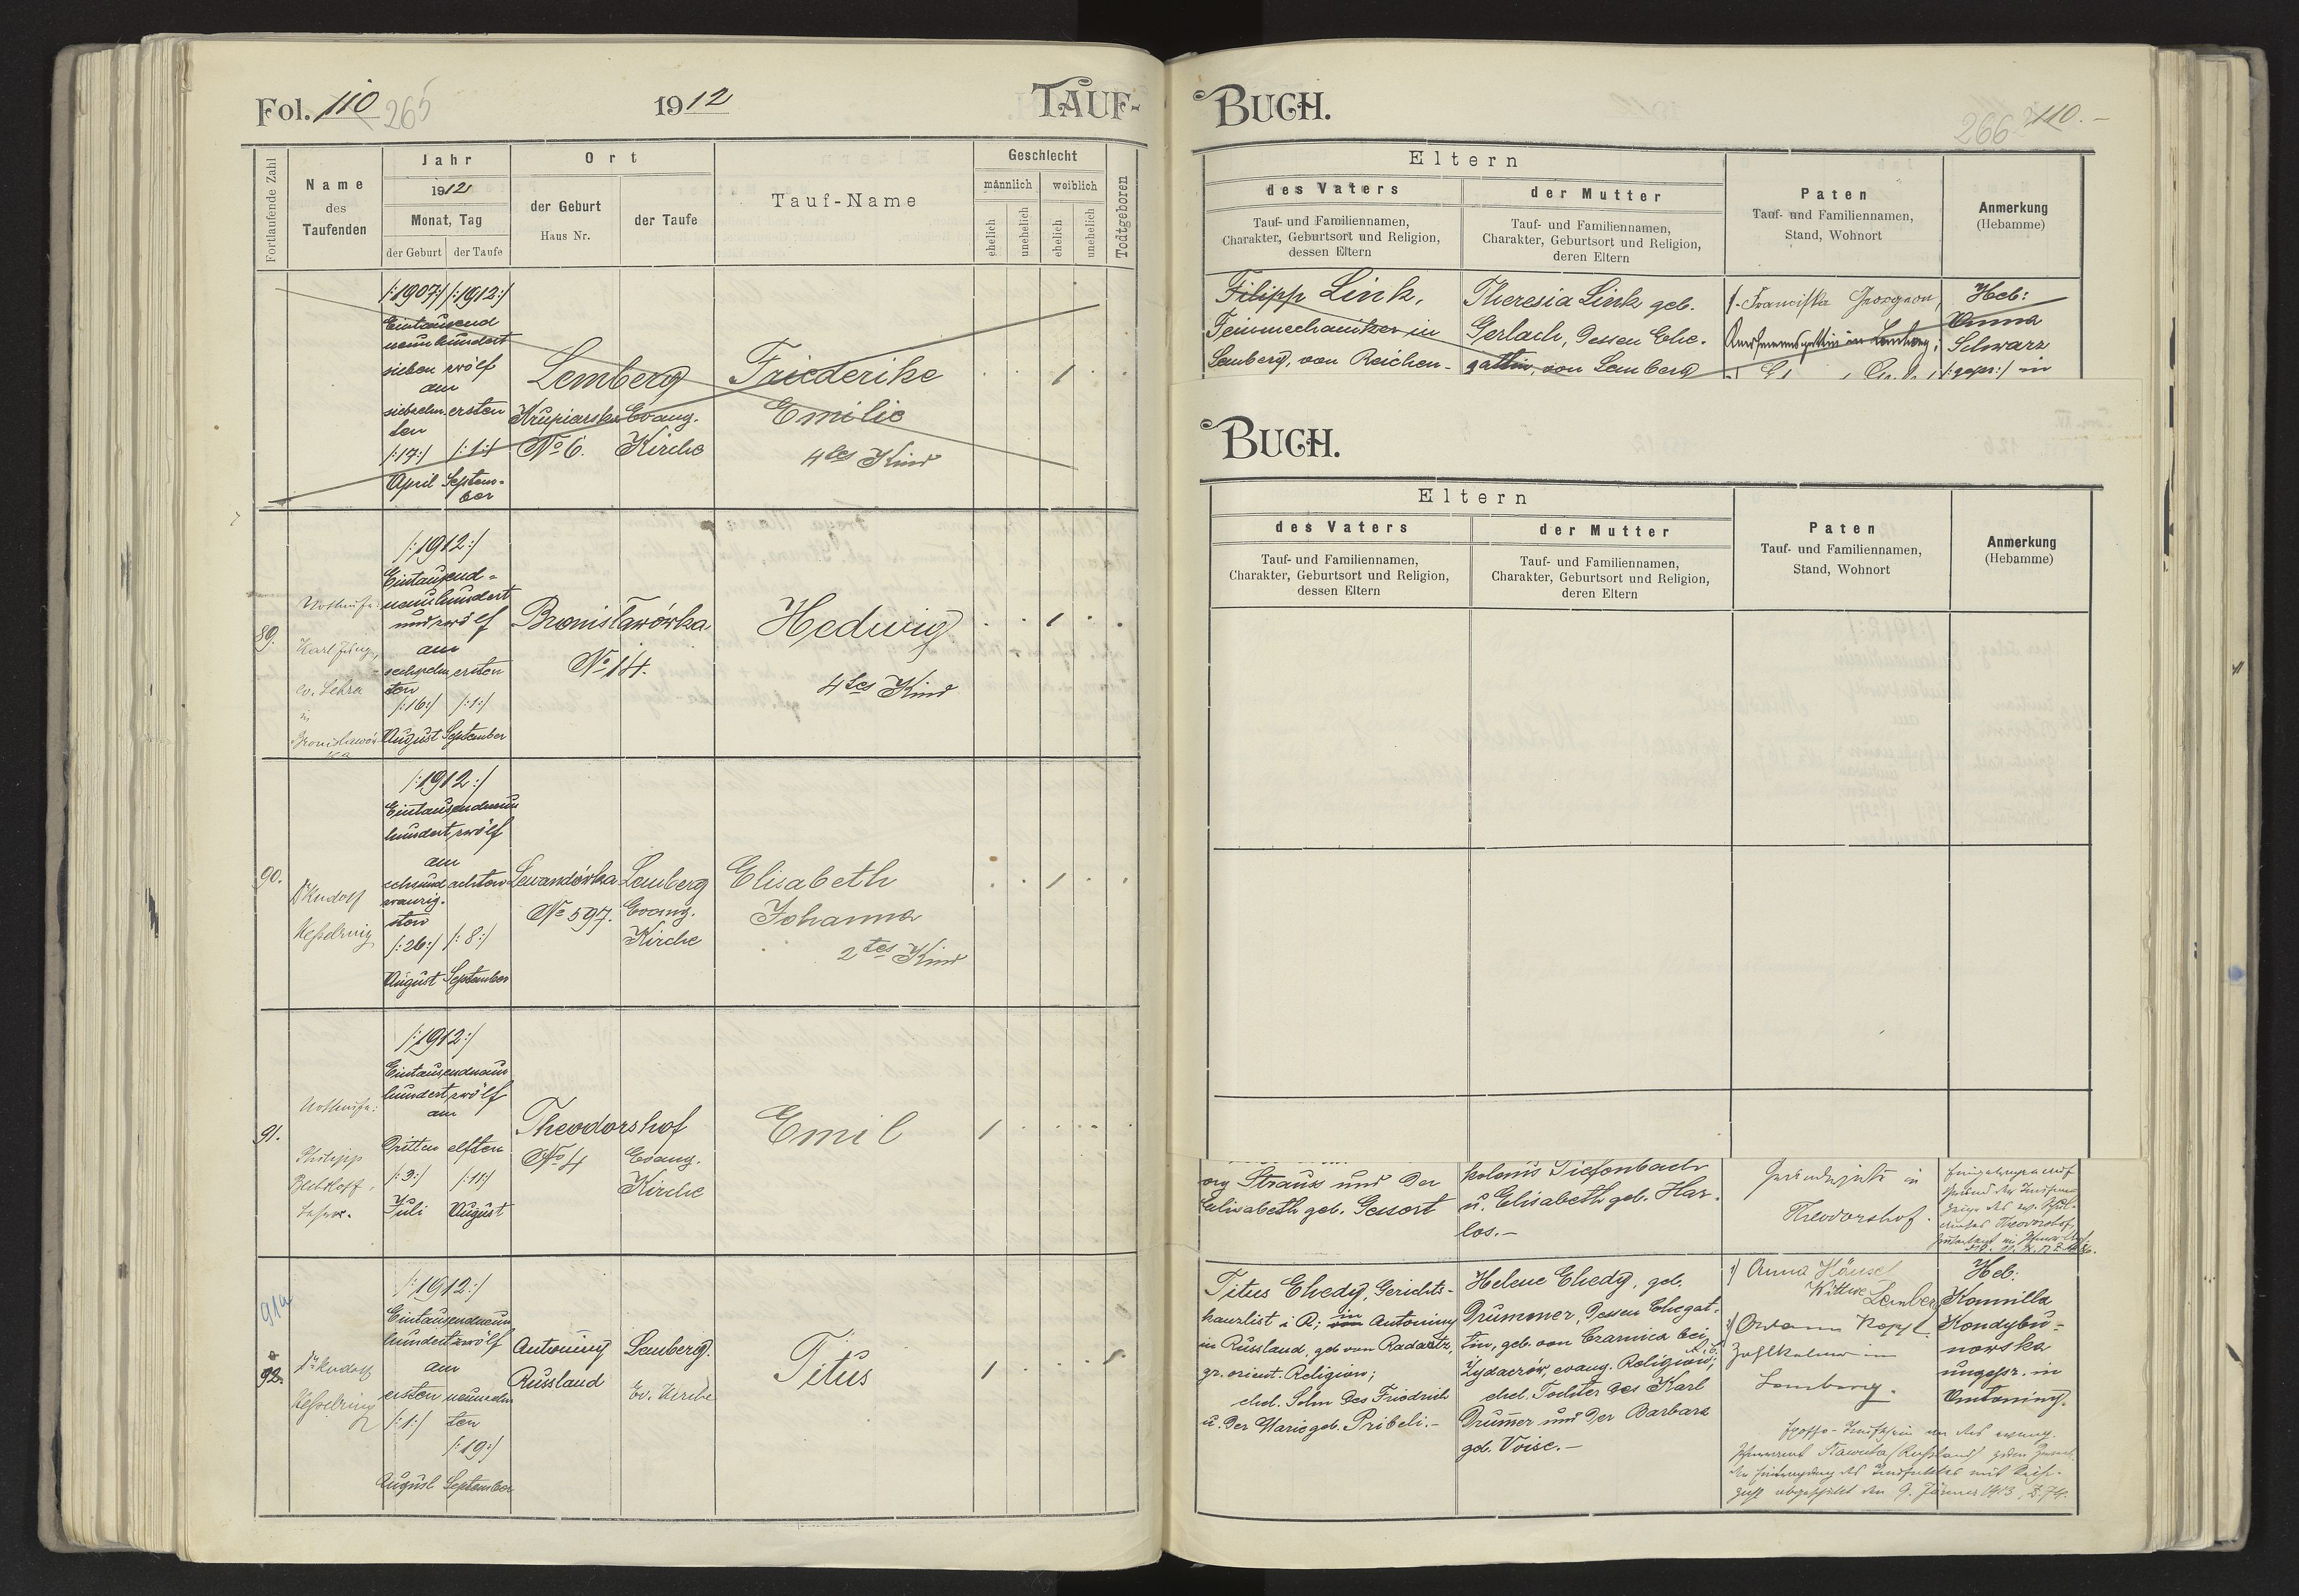 Fol. 110 265
1912
TAUF-
Fortlaufende Zahl
Name
des
Taufenden
Jahr
1912
Monat, Tag
der Geburt
der Taufe
Ort
der Geburt
Haus Nr.
der Taufe
Tauf-Name
Geschlecht
männlich
weiblich
ehelich
unehelich
ehelich
unehelich
Todtgeboren
/:1907:/ /:1912:/
Eintausend
neunhundert
sieben zwölf
am
siebzehn- ersten
ten
/:17:/ /:1:/
April Septem-
ber
Lemberg
Krupiarska Evang.
No 6. Kirche
Friederike
Emilie
4tes Kind
1
89.
Karl Jung,
ev. Lehrer
in
Bronislawów-
ka
/:1912:/
Eintausend-
neunhundert
und zwölf
am
sechzehn ersten
ten
/:16:/ /:1:/
August September
Bronislawówka
No 14.
Hedwig
4tes Kind
1
90.
Dr Rudolf
Kesselring
/:1912:/
Eintausendneun
hundert zwölf
am
sechsund achten
zwanzig-
sten
/:26:/ /:8:/
August September
Lewandówka
No 597.
Lemberg
Evang.
Kirche
Elisabeth
Johanna
2tes Kind
1
91.
Philipp
Lehrer.
/:1912:/
Eintausendneun
hundert zwölf
am
Dritten elften
/:3:/ /:11:/
Juli August
Theodorshof
No 4 Evang.
Kirche
Emil
1
91a
92.
Dr Rudolf
Kesselring
/:1912:/
Eintausendneun
hundert zwölf
am
ersten neunzehn
/:1:/ ten
/:19:/
August September
Antoniny
Russland
Lemberg.
Ev. Kirche
Titus
1
BUCH.
266 110.-
Eltern
des Vaters
Tauf- und Familiennamen,
Charakter, Geburtsort und Religion,
dessen Eltern
der Mutter
Tauf- und Familiennamen,
Charakter, Geburtsort und Religion,
deren Eltern
Paten
Tauf- und Familiennamen,
Stand, Wohnort
Anmerkung
(Hebamme)
Filipp Link,
Feinmechaniker in
Lemberg, von Reichen-
Theresia Link geb.
Gerlach, dessen Ehe-
gattin, von Lemberg
1. Franciska
in Lemberg;
Heb:
Anna
Schwarz
/:gepr:/ in
BUCH.
Eltern
des Vaters
Tauf- und Familiennamen,
Charakter, Geburtsort und Religion,
dessen Eltern
der Mutter
Tauf- und Familiennamen,
Charakter, Geburtsort und Religion,
deren Eltern
Paten
Tauf- und Familiennamen,
Stand, Wohnort
Anmerkung
(Hebamme)
org Strauss und der
Elisabeth geb. Gessert
kolonis Tiefenbach
u. Elisabeth geb. Har-
los.-
in
Theodorshof.
Titus Chedy, Gerichts-
kanzlist i. R; in Antoniny
in Russland, geb von Radautz,
gr. orient. Religion;
ehel. Sohn des Friedrich
u. der Marie geb. Pribeli.-
Helene Chedy, geb.
Drummer, dessen Ehegat-
tin, geb. von Czarnica bei
Zydaczów, evang. Religion;
ehel. Tochter des Karl
Drummer und der Barbara
geb. Voise.-
1) Anna Hänsel
Wittwe Lemberg
in
Lemberg.
Heb:
Kamilla
Kondybu-
nowska
ungepr. in
Antoniny.